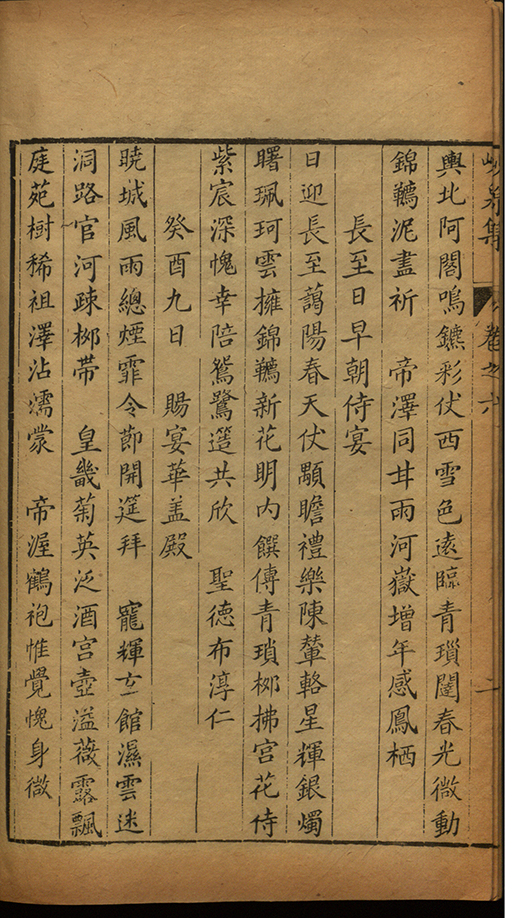 峴泉集 卷之六 二
輿北阿閣鳴鑣彩仗西雪色遠臨青瑣闥春光微動
錦韉泥盡祈 帝澤同甘雨河嶽增年感鳳栖
長至日早朝侍宴
日迎長至藹陽春天仗顒瞻禮樂陳輦輅星輝銀燭
曙珮珂雲擁錦韉新花明内饌傳青瑣栁拂宮花侍
紫宸深愧幸陪鴛鷺筵共欣 聖德布淳仁
癸酉九日 賜宴華盖殿
曉城風雨總煙霏令節開筵拜 寵輝玄館濕雲迷
洞路官河疎栁帶 皇畿菊英泛酒宮壺溢薇露飄
庭苑樹稀祖澤沾濡蒙 帝渥鶴袍惟覺愧身微